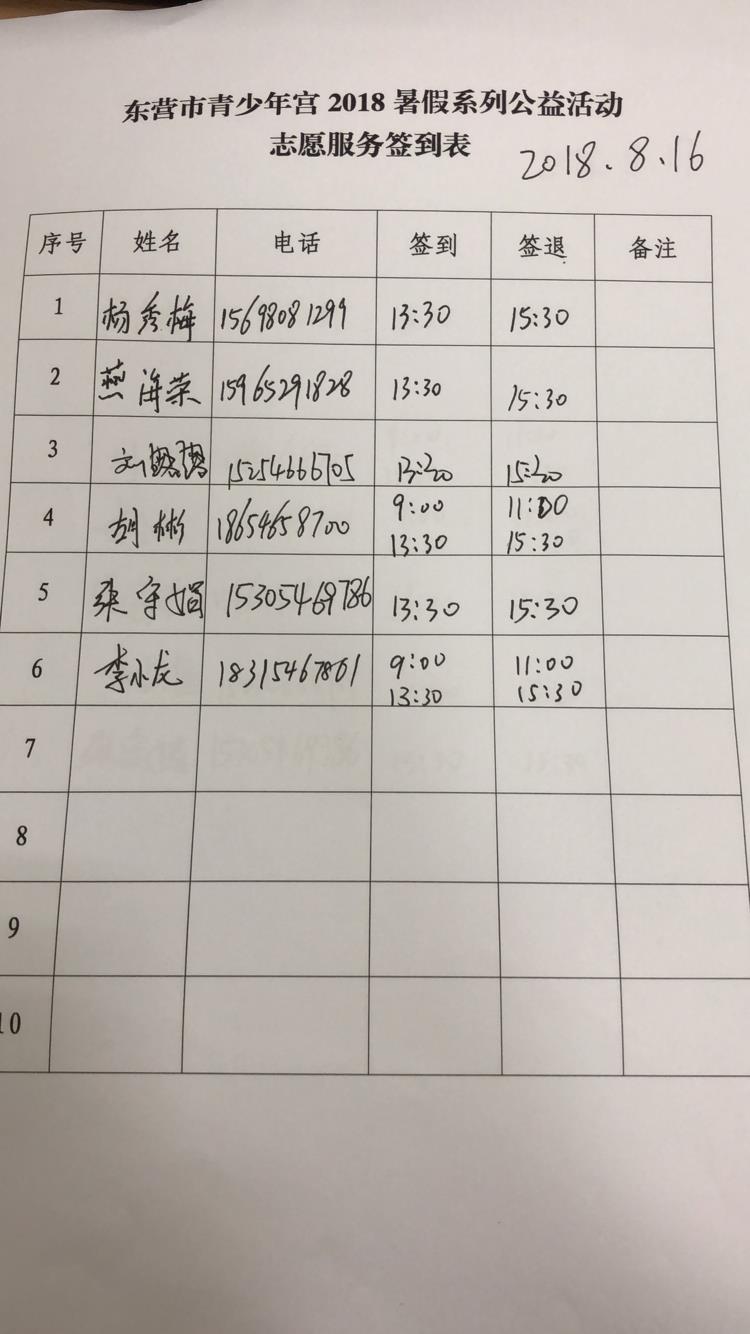 东营市青少年宫 2018 暑假系列公益活动
志愿服务签到表
2018.8.16
序号 姓名 电话 签到 签退 备注
1 杨秀梅 15698081299 13:30 15:30
2 燕海荣 15965291828 13:30 15:30
3 刘 15254666705 13:30 15:30
4 胡彬 18654658700 9:00 11:00
13:30 15:30
5 张守娟 15305469786 13:30 15:30
6 李小龙 18315467861 9:00 11:00
13:30 15:30
7
8
9
10